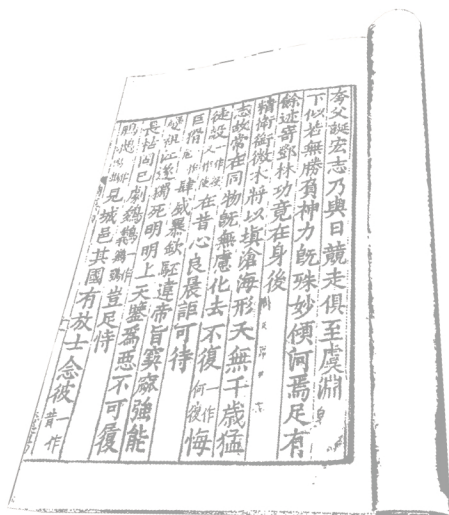 夸父誕宏志乃與日競走俱至虞淵
下似若無勝負神力旣殊妙傾河焉足有
餘迹寄鄧林功竟在身後
精衛銜微木將以填滄海形天無千歲猛
志故常在同物旣無慮化去不復一作何復悔
徒設一作使在昔心良晨詎可待
巨猾肆威暴欽駓違帝旨窫窳強能
變祖江遂獨死明明上天鑒爲惡不可履
長枯固已劇鵕鶚一作豈足恃
見城邑其國有放士念彼一作昔